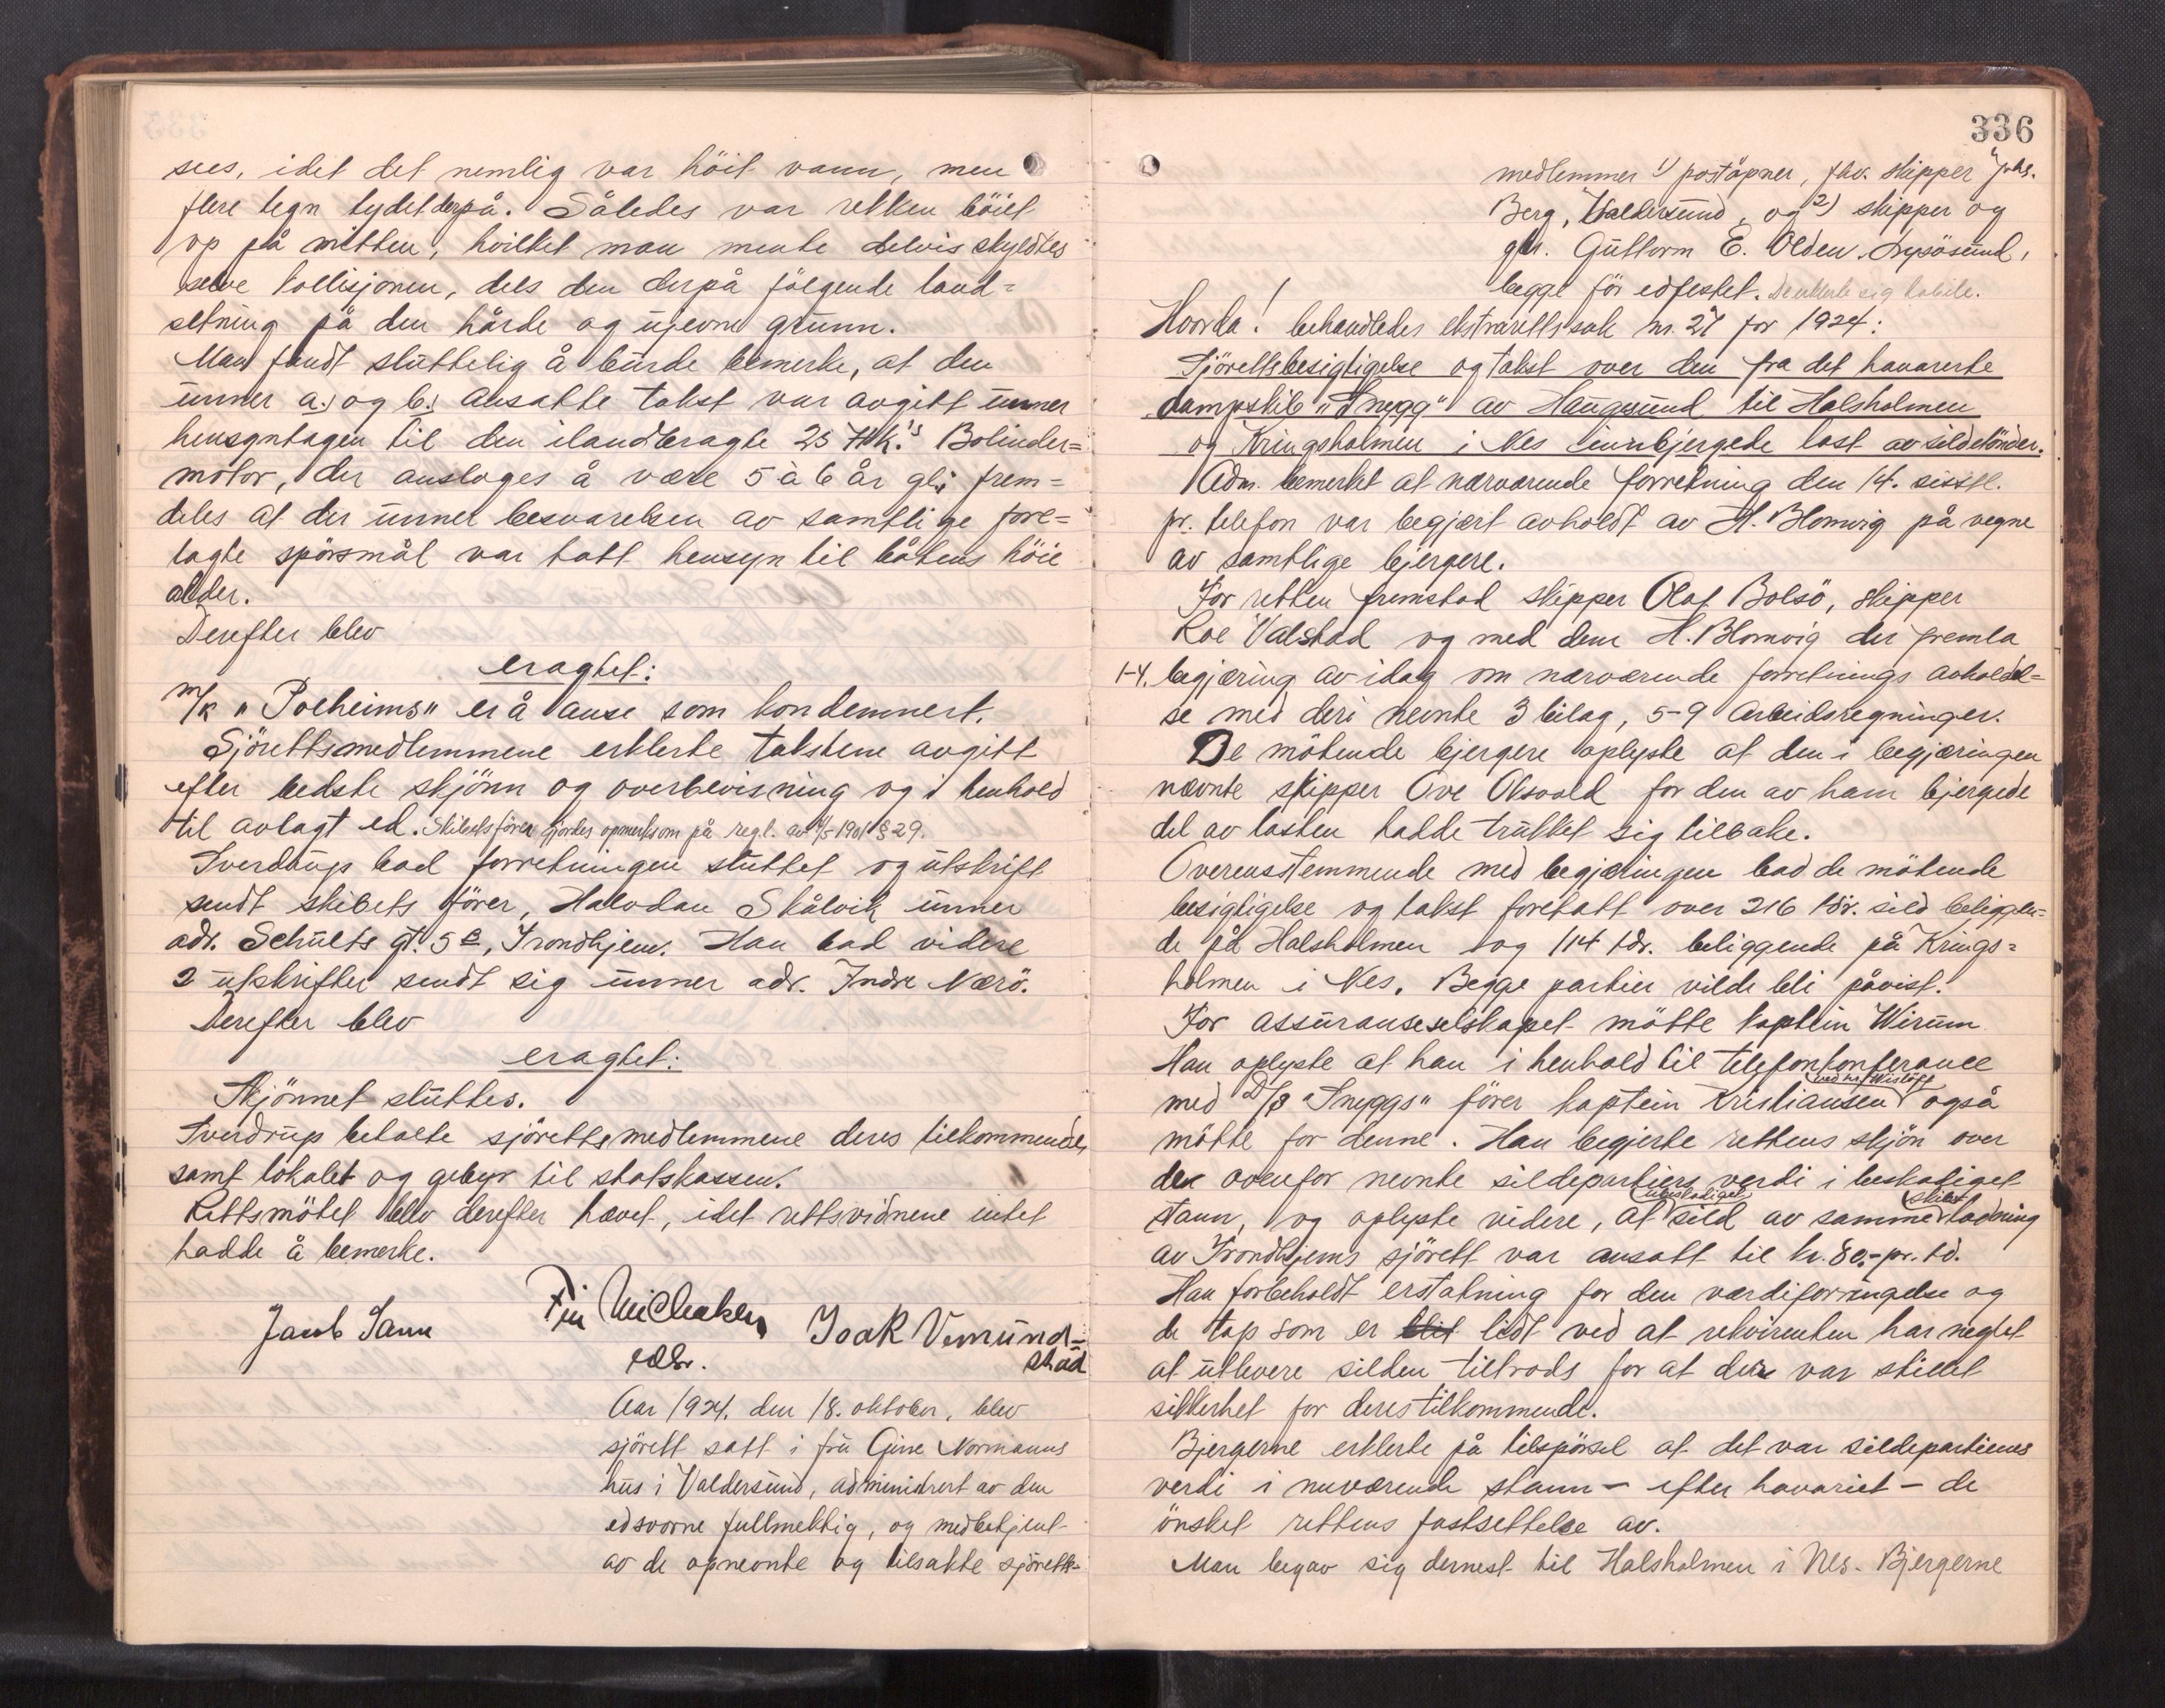 sees, idet det nemlig var höit vann, men
flere tegn tydet derpå. Således var rekken böiet
op på mitten, hvilket man mente delvis skyldtes
selve kollisjonen, dels den derpå fölgende land-
setning på den hårde og ujevne grunn.
Man fandt sluttelig å burde bemerke, at den
unner a.) og b.) ansatte takst var avgitt unner
hensyntagen til den ilandbragte 25 Hk.'s Bolinder-
motor, der antoges å være 5 à 6 år gl., frem-
deles at der unner besvarelsen av samtlige fore-
lagte spörsmål var tatt hensyn til båtens höie
alder.
Derefter blev
eragtet:
M/k "Polheims" er å anse som kondemnert.
Sjörettsmedlemmene erklerte takstene avgitt
efter bedste skjönn og overbevisning og i henhold
til avlagt ed. Skibets förer gjordes opmerksom på regl. av 4/5-1901 § 29.
Sverdrup bad forretningen sluttet og utskrift
sendt skibets förer, Halvdan Skålvik unner
adr. Schults gt. 5 B, Trondhjem. Han bad videre
2 utskrifter sendt sig unner adr. Indre Nærö.
Derefter blev
eragtet:
Skjönnet sluttes.
Sverdrup betalte sjörettsmedlemmene deres tilkommende,
samt lokalet og gebyr til statskassen.
Rettsmötet blev derefter hævet, idet rettsvidnene intet
hadde å bemerke.
Jacob Sann
Fin Michalsen
Isak Vemund-
stad
edsv.
Aar 1924, den 18. oktober, blev
sjörett satt i fru Gine Normanns
hus i Valdersund, administrert av den
edsvorne fullmektig, og medbetjent
av de opnevnte og tilsatte sjöretts-
336
medlemmer 1) poståpner, fhv. skipper Johs.
Berg, Valdersund, og 2) skipper og
gbr. Guttorm E. Olden, Lysösund,
begge för edfestet. De erklerte sig habile.
Hvorda! behandledes ekstrarettssak nr. 27 for 1924:
Sjörettsbesigtigelse og takst over den fra det havarerte
dampskib "Snegg" av Haugesund til Halsholmen
og Kringsholmen i Nes innbjergede last av sildetönder.
Adm. bemerket at nærværende forretning den 14. sisstl.
pr. telefon var begjært avholdt av H. Blomvig på vegne
av samtlige bjergere.
For retten fremstod skipper Olaf Bolsö, skipper
Roe Valstad og med dem H. Blomvig der fremla
1-4. begjæring av idag om nærværende forretnings avholdel-
se med deri nevnte 3 bilag, 5-9 arbeidsregninger.
De mötende bjergere oplyste at den i begjæringen
nævnte skipper Ove Oksvold for den av ham bjergede
del av lasten hadde trukket sig tilbake.
Overensstemmende med begjæringen bad de mötende
besigtigelse og takst foretatt over 216 tdr. sild beliggen-
de på Halsholmen og 114 tdr. beliggende på Krings-
holmen i Nes. Begge partier vilde bli påvist.
For assuranseselskapet mötte kaptein Wirum.
Han oplyste at han i henhold til telefonkonferance
ved hr. Wislöff
med D/S "Sneggs" förer kaptein Kristiansen også
mötte for denne. Han begjerte rettens skjön over
den ovenfor nevnte sildepartiers verdi i beskadiget
ubeskadiget
skibs
stann, og oplyste videre, at sild av samme ladning
av Trondhjems sjörett var ansatt til kr. 80,- pr. td.
Han forbeholdt erstatning for den værdiforringelse og
de tap som er blit lidt ved at rekvirenten har negtet
at utlevere silden tiltrods for at der var stillet
sikkerhet for deres tilkommende.
Bjergerne erklerte på tilspörsel at det var sildepartienes
verdi i nuværende stann - efter havariet - de
önsket rettens fastsettelse av.
Man begav sig dernest til Halsholmen i Nes. Bjergerne